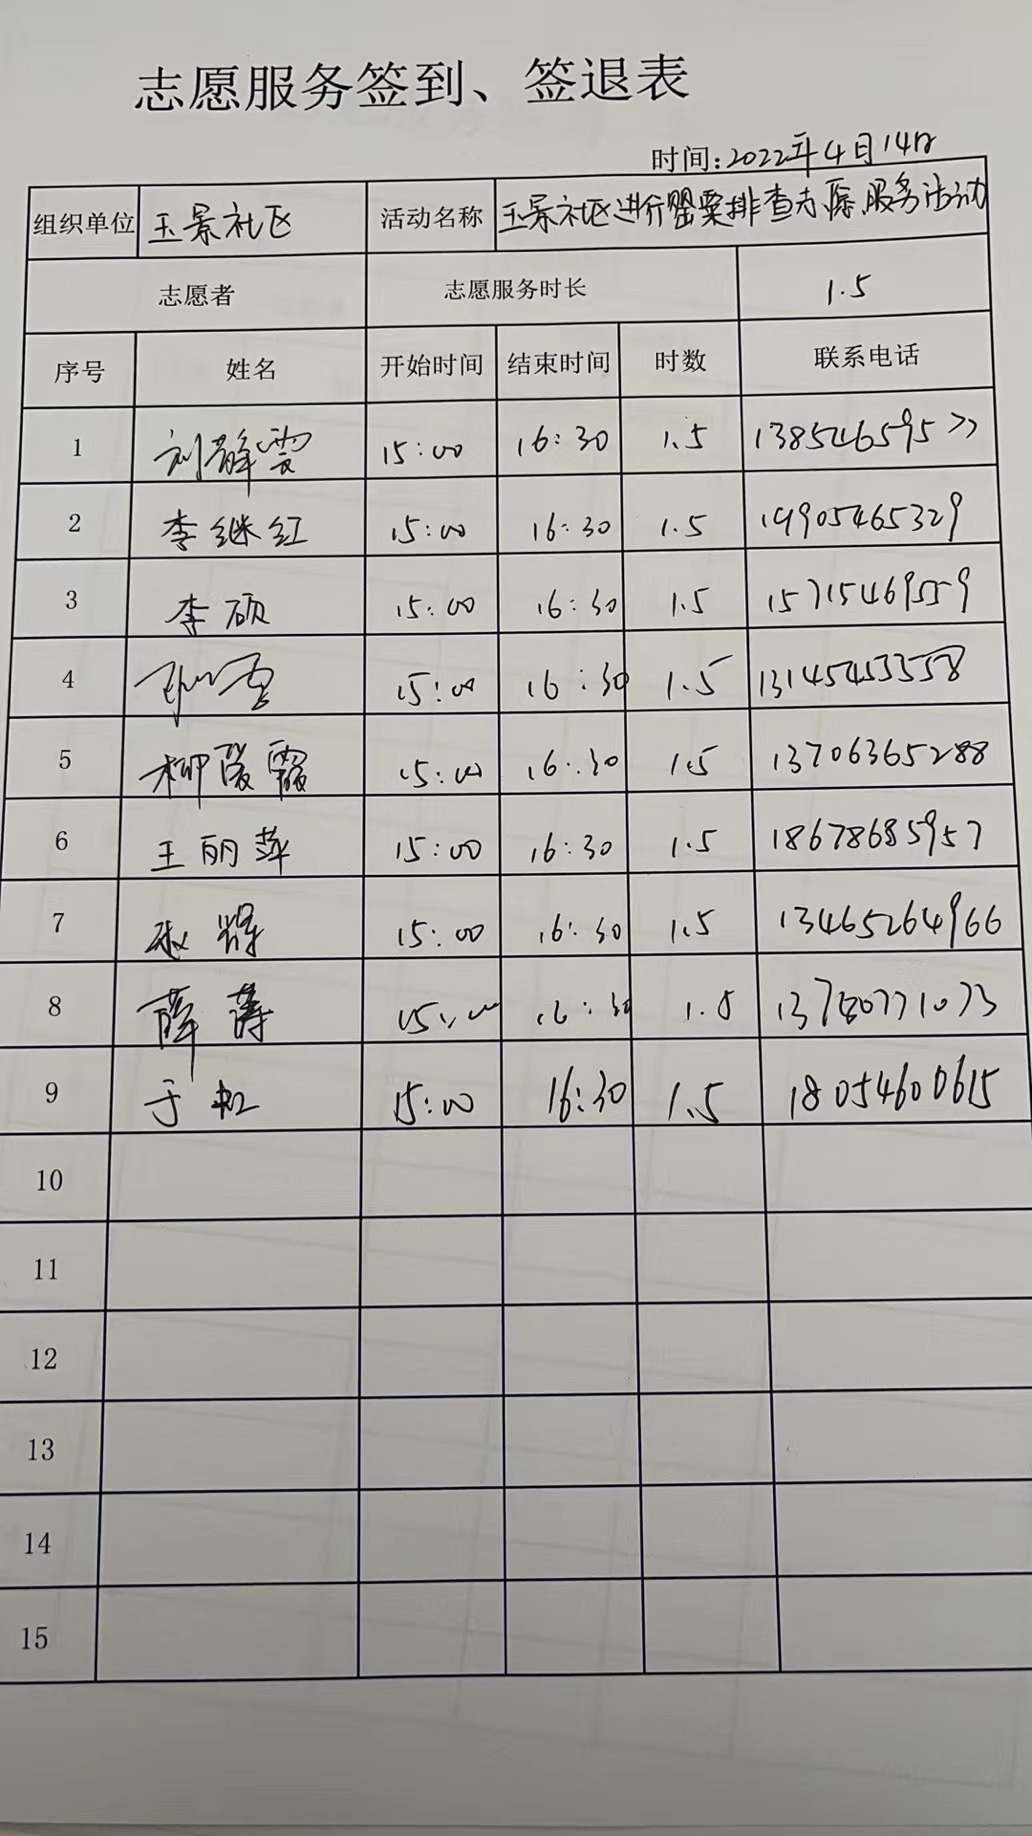 志愿服务签到、签退表
时间:2022年4月14日
组织单位 玉景社区 活动名称 玉景社区进行罂粟排查志愿服务活动
志愿者 志愿服务时长 1.5
序号 姓名 开始时间 结束时间 时数 联系电话
1 刘静雲 15:00 16:30 1.5 13854659577
2 李继红 15:00 16:30 1.5 19905465329
3 李硕 15:00 16:30 1.5 15715469559
4 15:00 16:30 1.5
5 柳霞 15:00 16:30 1.5 13706365288
6 王丽萍 15:00 16:30 1.5 18678685957
7 15:00 16:30 1.5 13465264966
8 薛涛 15:00 16:30 1.5
9 于虹 15:00 16:30 1.5 18054600615
10
11
12
13
14
15